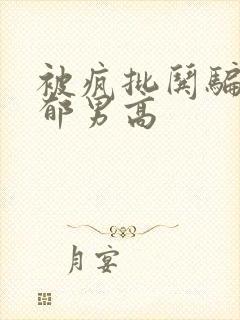 被疯批哭骗
郁男高
月宴